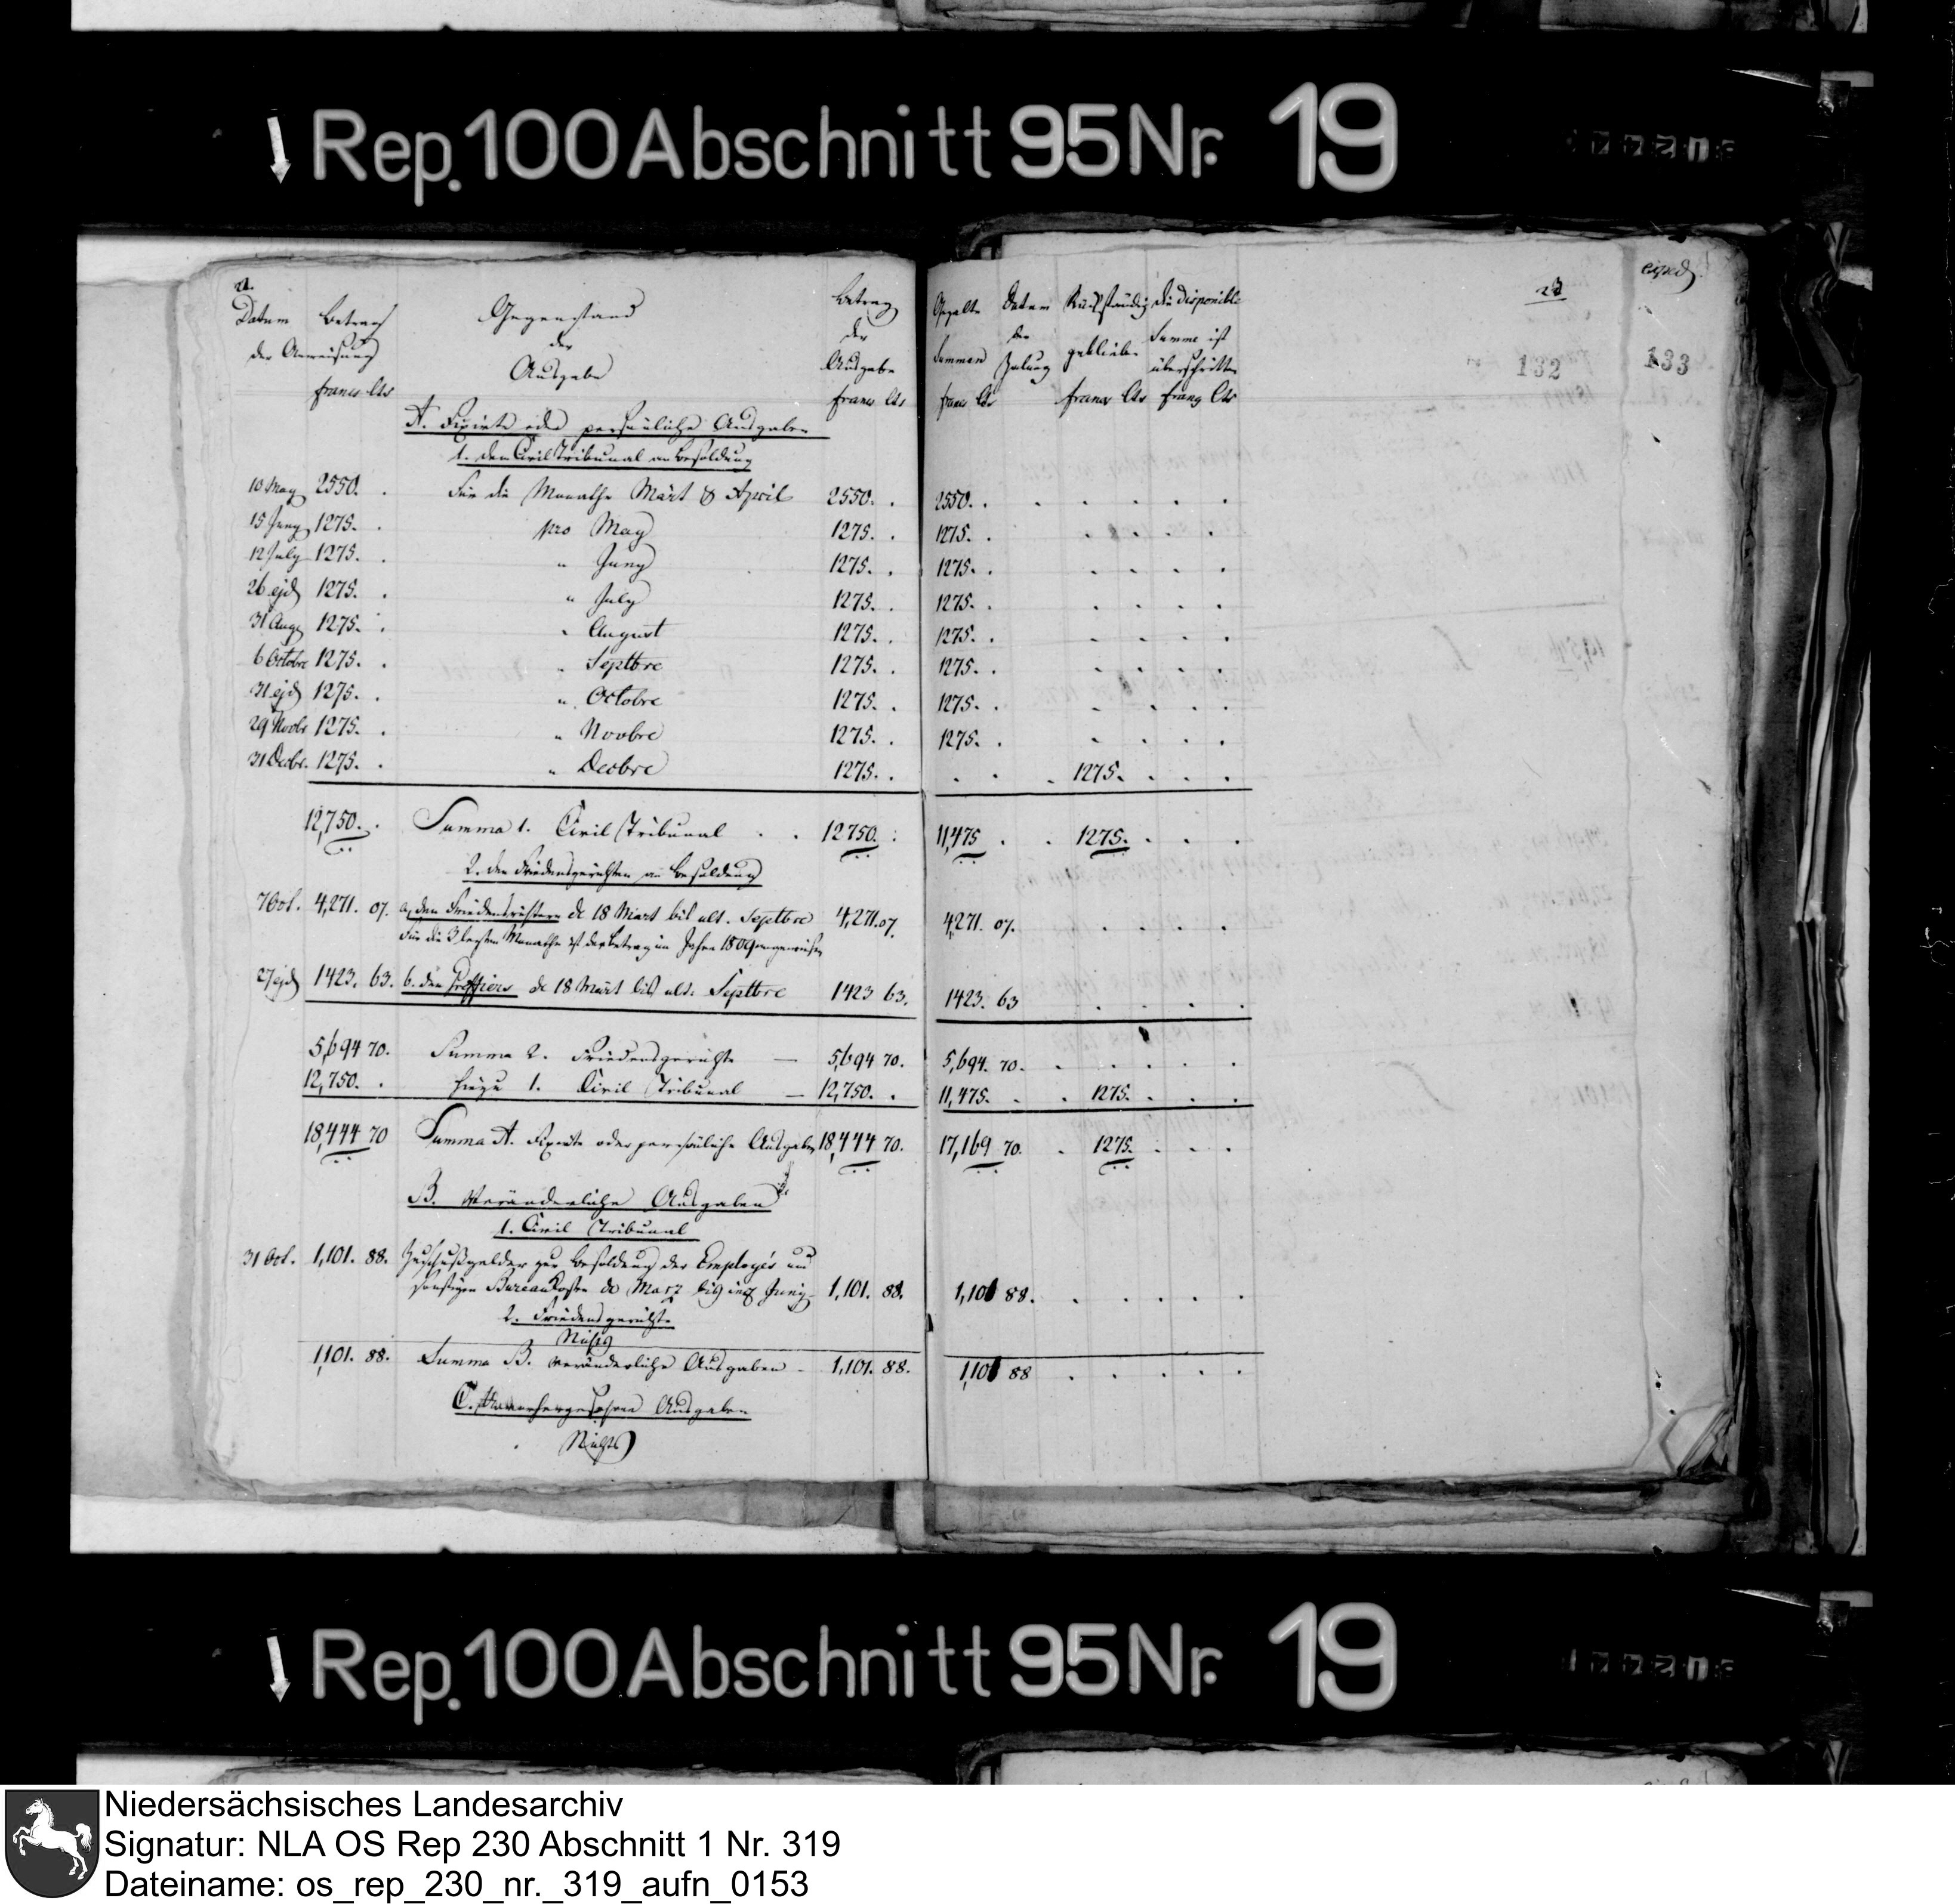 Rep. 100 Abschnitt 95 Nr. 19
22.
Datum Betrag Gegenstand Betrag
der Anweisung der der
Ausgabe Ausgabe
francs Cts francs Cts
A. Fixirte oder persönliche Ausgaben
1. dem Civil Tribunal an Besoldung
10 May 2550. . Für die Monathe Märt & April 2550. .
15 Juny 1275. . pro May 1275. .
12 July 1275. . " Juny 1275. .
26 ejd 1275. . " July 1275. .
31 Aug 1275. . " August 1275. .
6 Octobre 1275. . " Septbre 1275. .
31 ejd 1275. . " Octobre 1275. .
29 Novbr 1275. . " Novbre 1275. .
31 Decbr. 1275. . " Decbre 1275. .
12,750. . Summa 1. Civil Tribunal . . 12750. .
2. den Friedensgerichten an Besoldung
7 Oct. 4,271. 07. a, den Friedensrichtern de 18 Märt bis ult. Septbre 4,271. 07.
Für die 3 letzten Monathe ist der Betrag im Jahre 1809 angewiesen
27 ejd 1423. 63. b. den Greffiers de 18 Märt bis ult. Septbre 1423 63.
5,694 70. Summa 2. Friedensgerichte — 5,694 70.
12,750. . hiezu 1. Civil Tribunal — 12,750. .
18,444 70 Summa A. Fixirte oder persönliche Ausgaben 18,444 70.
B. Veränderliche Ausgaben
1. Civil Tribunal
31 Oct. 1,101. 88. Zuschußgelder zur Besoldung der Employés und
sonstigen Bureaukosten de Marz bis incl. Juny 1,101. 88.
2. Friedensgerichte
Nichts
1,101. 88. Summa B. veränderliche Ausgaben - 1,101. 88.
C. Unvorhergesehene Ausgaben
Nichts
23
132
133
Gezalte Datum Rückständig Die disponible
Summen der geblieben Summe ist
Zalung überschritten
francs Cts francs Cts francs Cts
2550. .
1275. .
1275. .
1275. .
1275. .
1275. .
1275. .
1275. .
. . . 1275. . . .
11,475 . . 1275. . . .
4,271. 07.
1423. 63
5,694. 70.
11,475. . . 1275. . . .
17,169 70. . 1275. . . .
1,101 88.
1,101 88
Rep. 100 Abschnitt 95 Nr. 19
Niedersächsisches Landesarchiv
Signatur: NLA OS Rep 230 Abschnitt 1 Nr. 319
Dateiname: os_rep_230_nr._319_aufn_0153